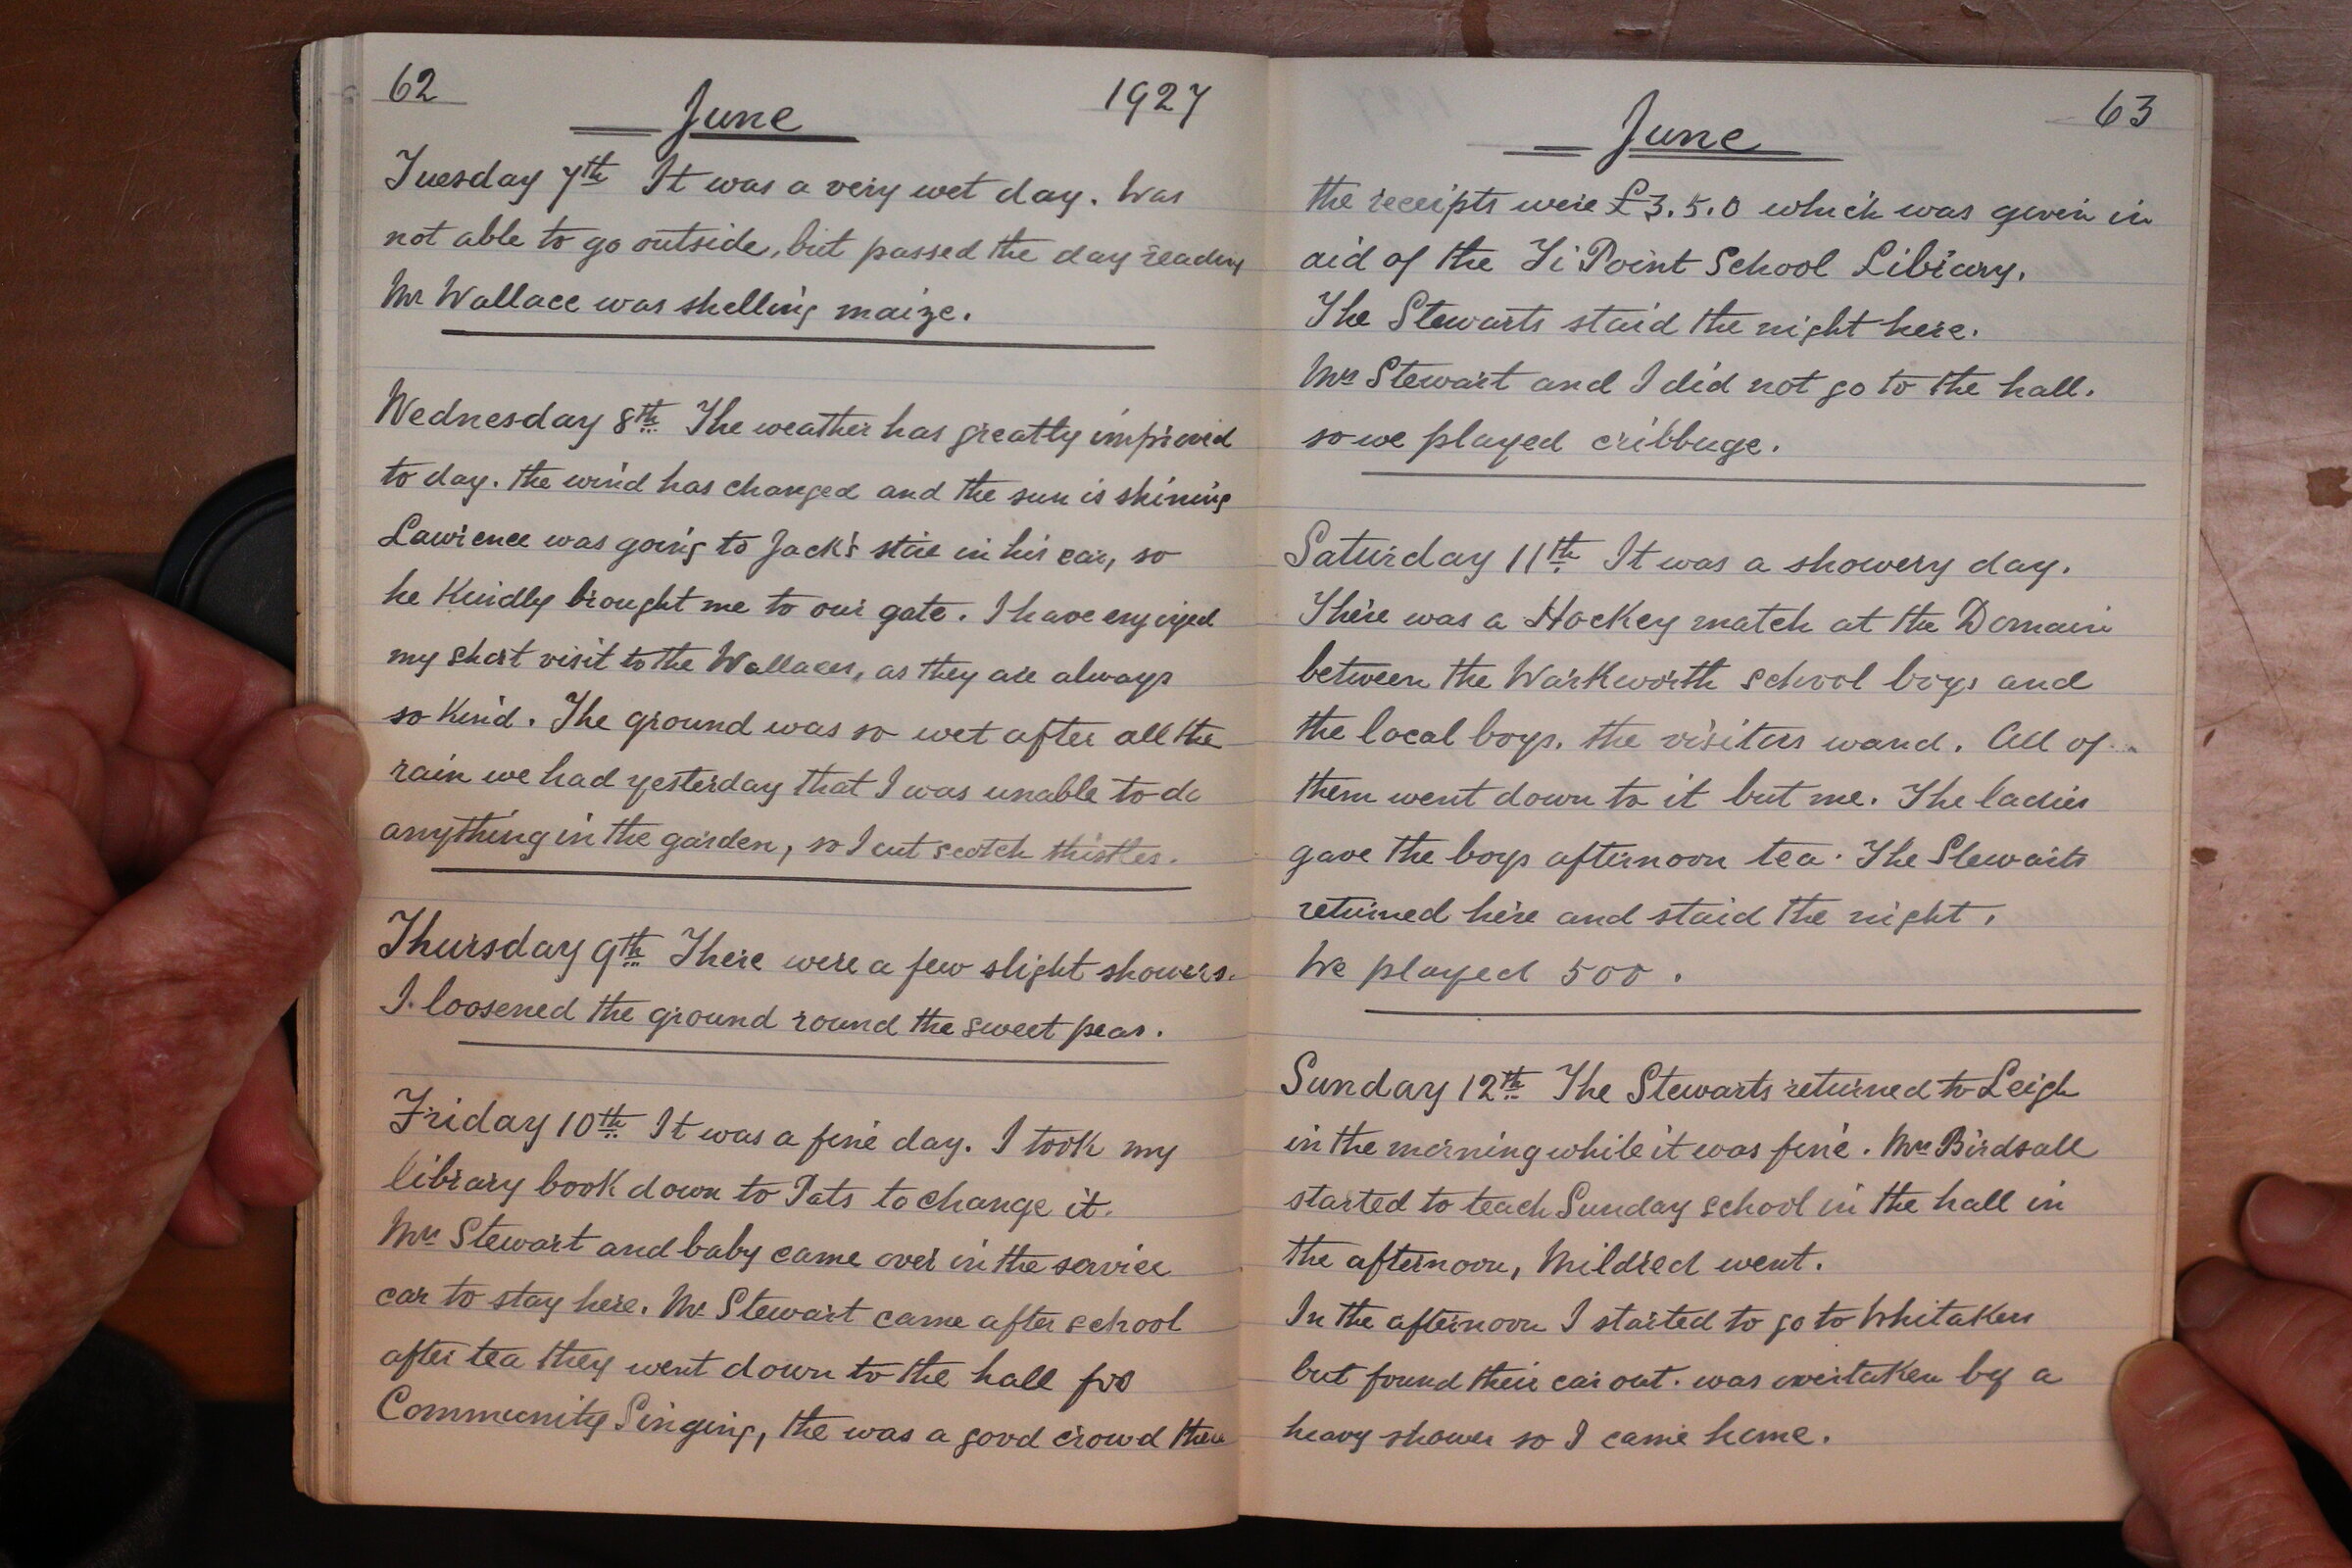 62
June
1927
Tuesday 7th It was a very wet day. Was
not able to go outside, but passed the day reading
Mr Wallace was shelling maize.
Wednesday 8th The weather has greatly improved
to day. the wind has changed and the sun is shining
Lawrence was going to Jack's store in his car, so
he kindly brought me to our gate. I have enjoyed
my short visit to the Wallaces, as they are always
so kind. The ground was so wet after all the
rain we had yesterday that I was unable to do
anything in the garden, so I cut scotch thistles.
Thursday 9th There were a few slight showers.
I loosened the ground round the sweet peas.
Friday 10th It was a fine day. I took my
library book down to Pats to change it.
Mrs Stewart and baby came over in the service
car to stay here. Mr Stewart came after school
after tea they went down to the hall for
Community Singing, the was a good crowd there
63
June
the receipts were £3.5.0 which was given in
aid of the Ti Point School Library.
The Stewarts staid the night here.
Mrs Stewart and I did not go to the hall.
so we played cribbuge.
Saturday 11th It was a showery day.
There was a Hockey match at the Domain
between the Warkworth school boys and
the local boys. the visitors wand. All of
them went down to it but me. The ladies
gave the boys afternoon tea. The Stewarts
returned here and staid the night.
We played 500.
Sunday 12th The Stewarts returned to Leigh
in the morning while it was fine. Mrs Birdsall
started to teach Sunday school in the hall in
the afternoon, Mildred went.
In the afternoon I started to go to Whitakers
but found their car out. was overtaken by a
heavy shower so I came home.